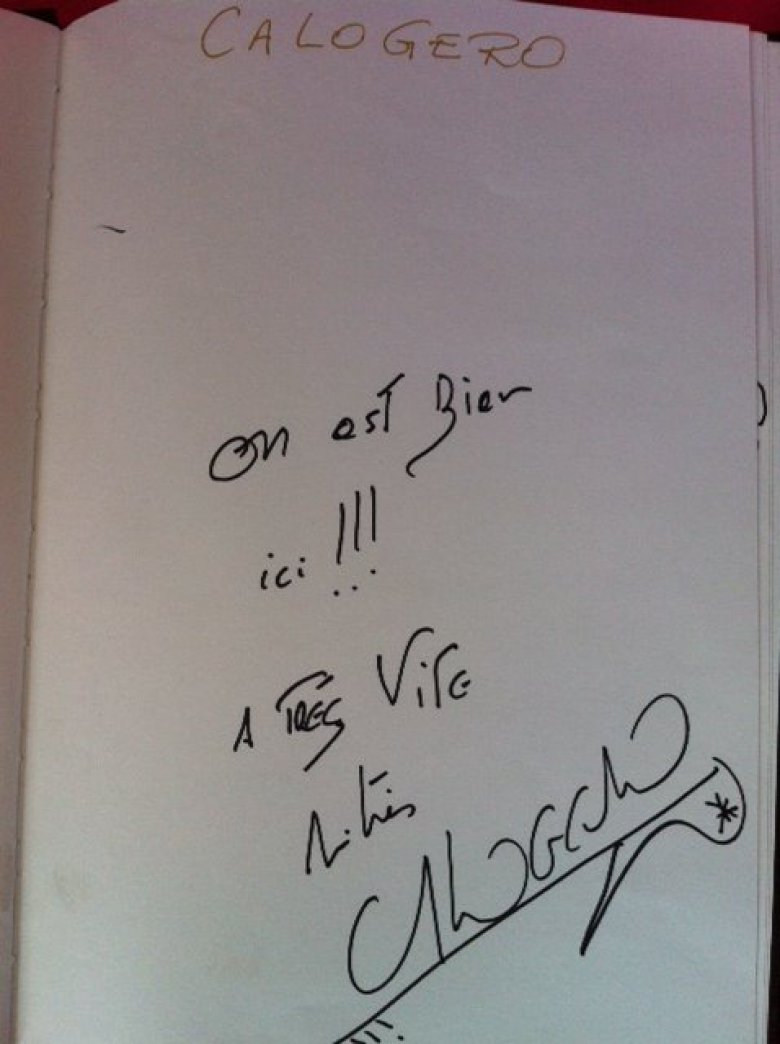 CALOGERO
On est Bien
ici !!!
A TRES Vite
CALOGERO